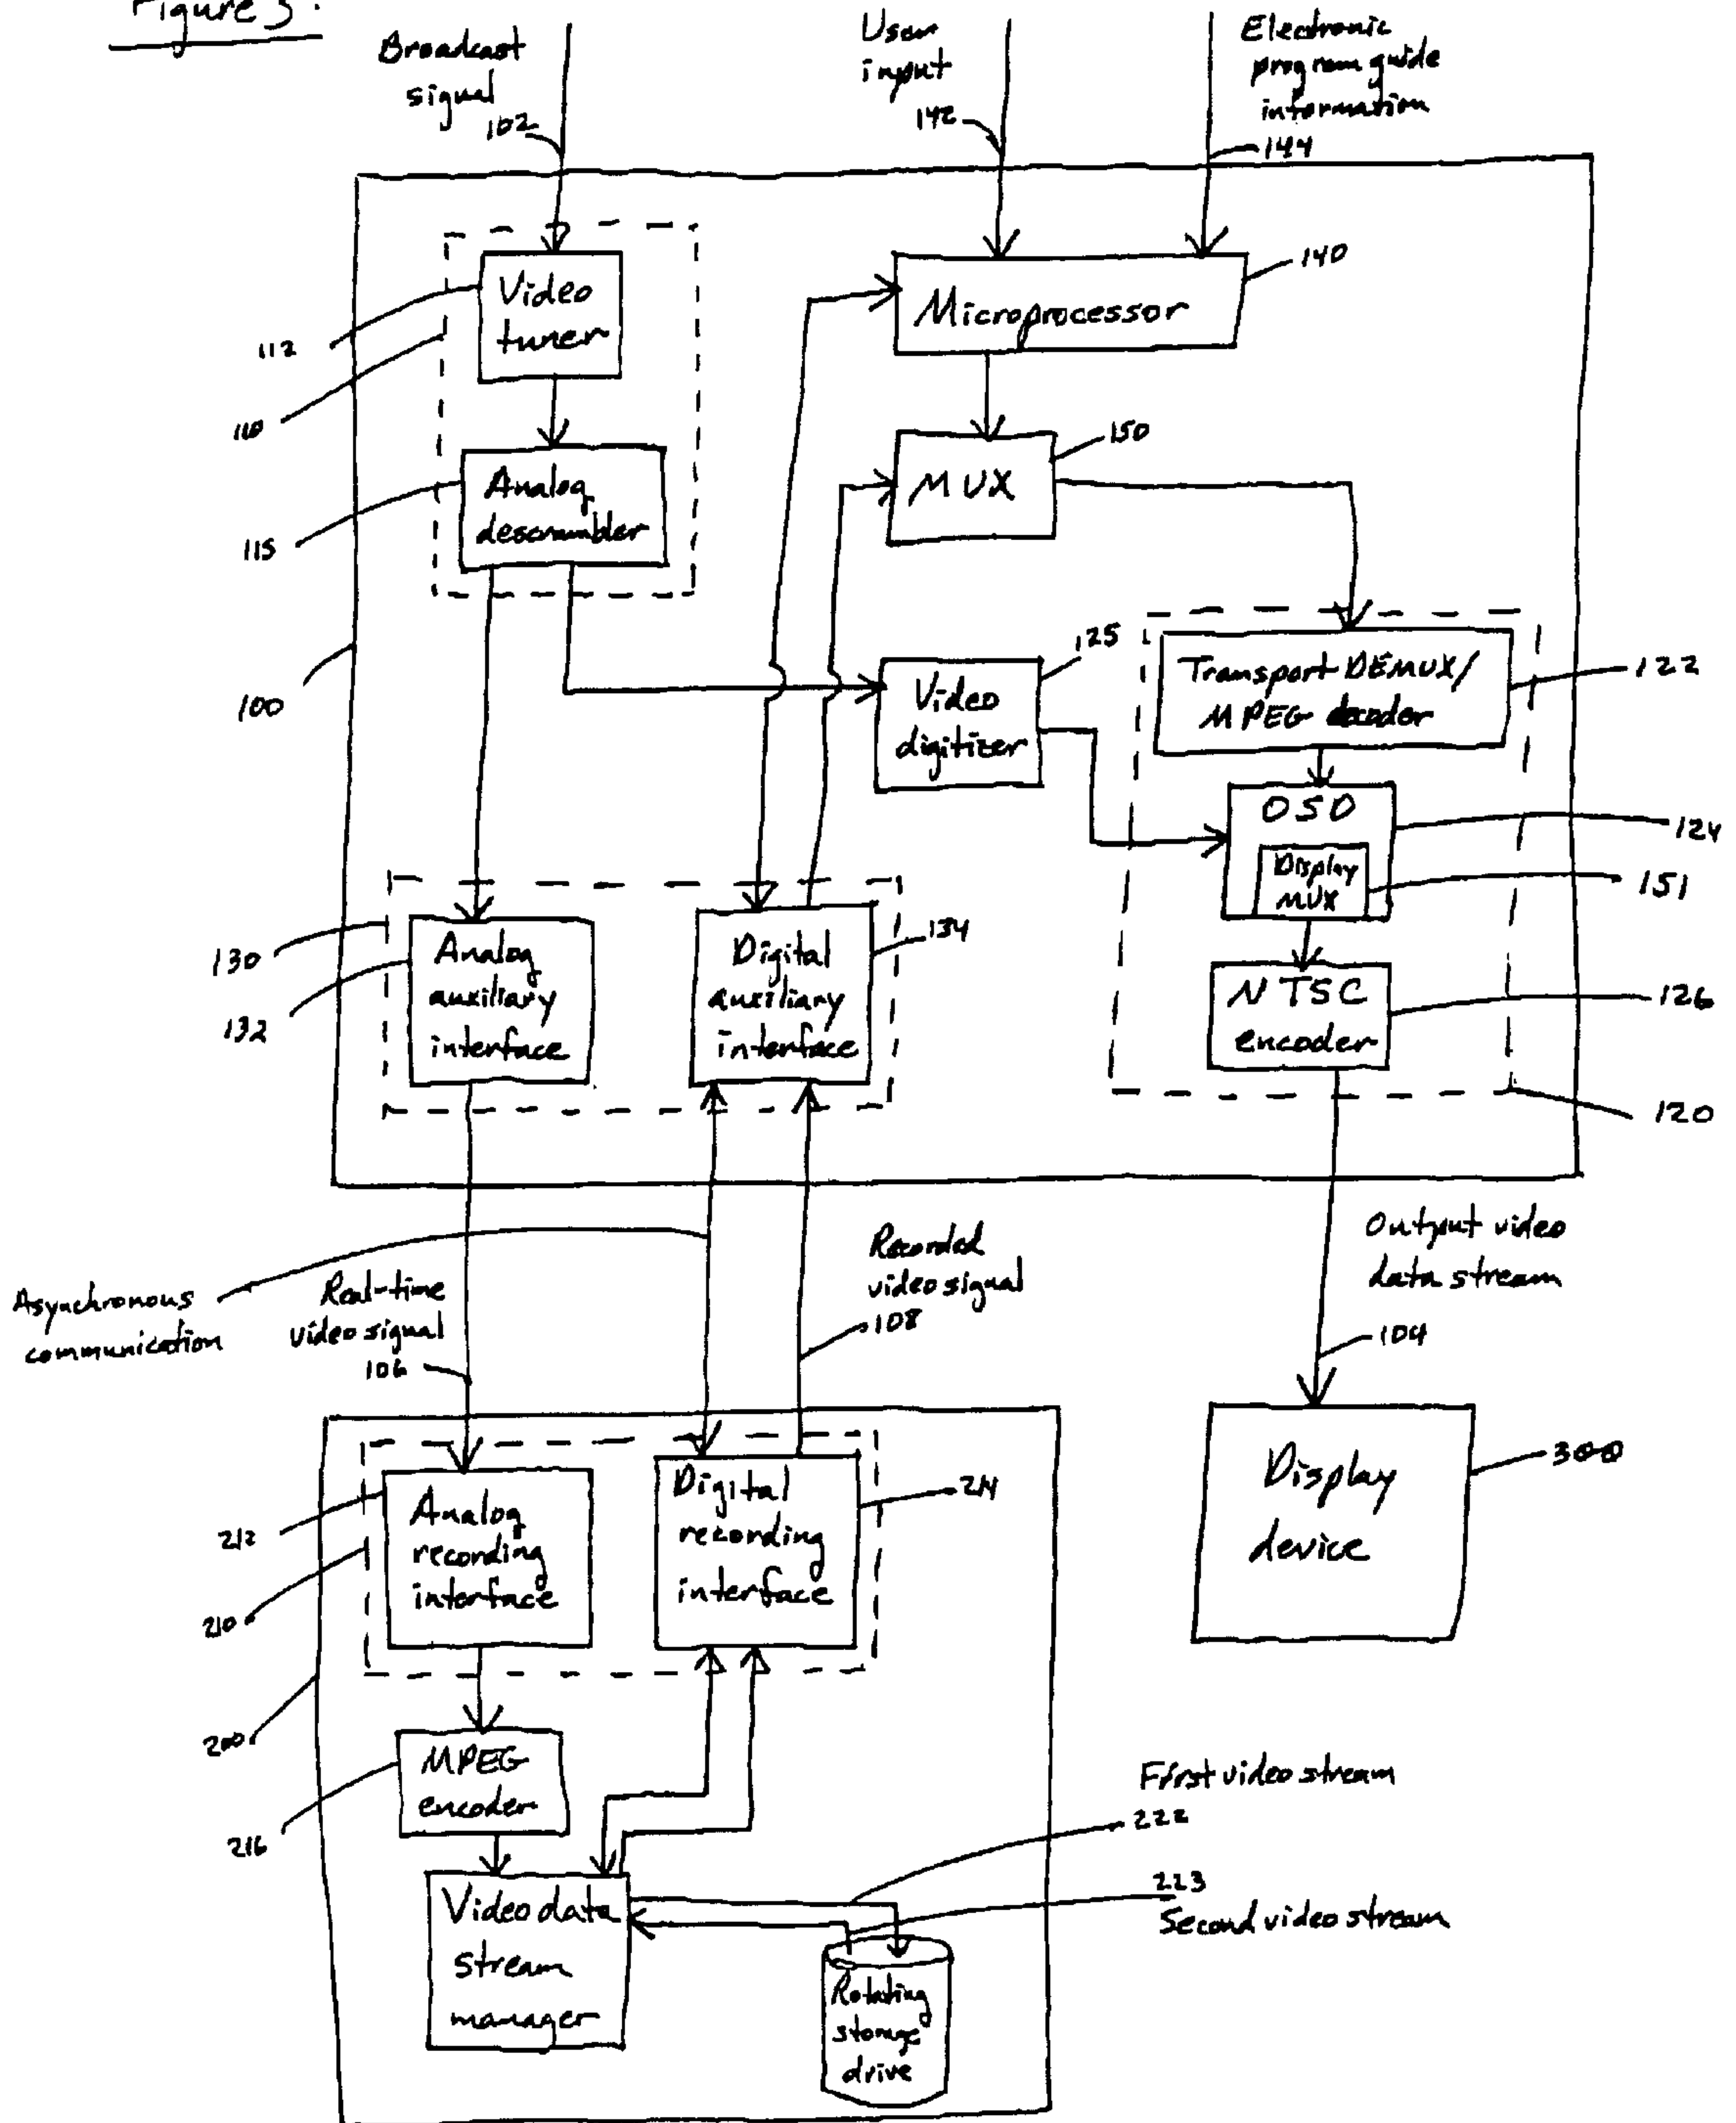 Figure 3.
Broadcast
signal
102
User
input
142
Electronic
program guide
information
144
Video
tuner
112
110
Microprocessor
140
Analog
descrambler
115
MUX
150
100
Video
digitizer
125
Transport DEMUX/
MPEG decoder
122
OSD
124
Display
MUX
151
NTSC
encoder
126
120
130
132
Analog
auxiliary
interface
Digital
auxiliary
interface
134
Asynchronous
communication
Real-time
video signal
106
Recorded
video signal
108
Output video
data stream
104
Display
device
300
212
210
Analog
recording
interface
Digital
recording
interface
214
200
MPEG
encoder
216
First video stream
222
223
Second video stream
Video data
stream
manager
Rotating
storage
drive